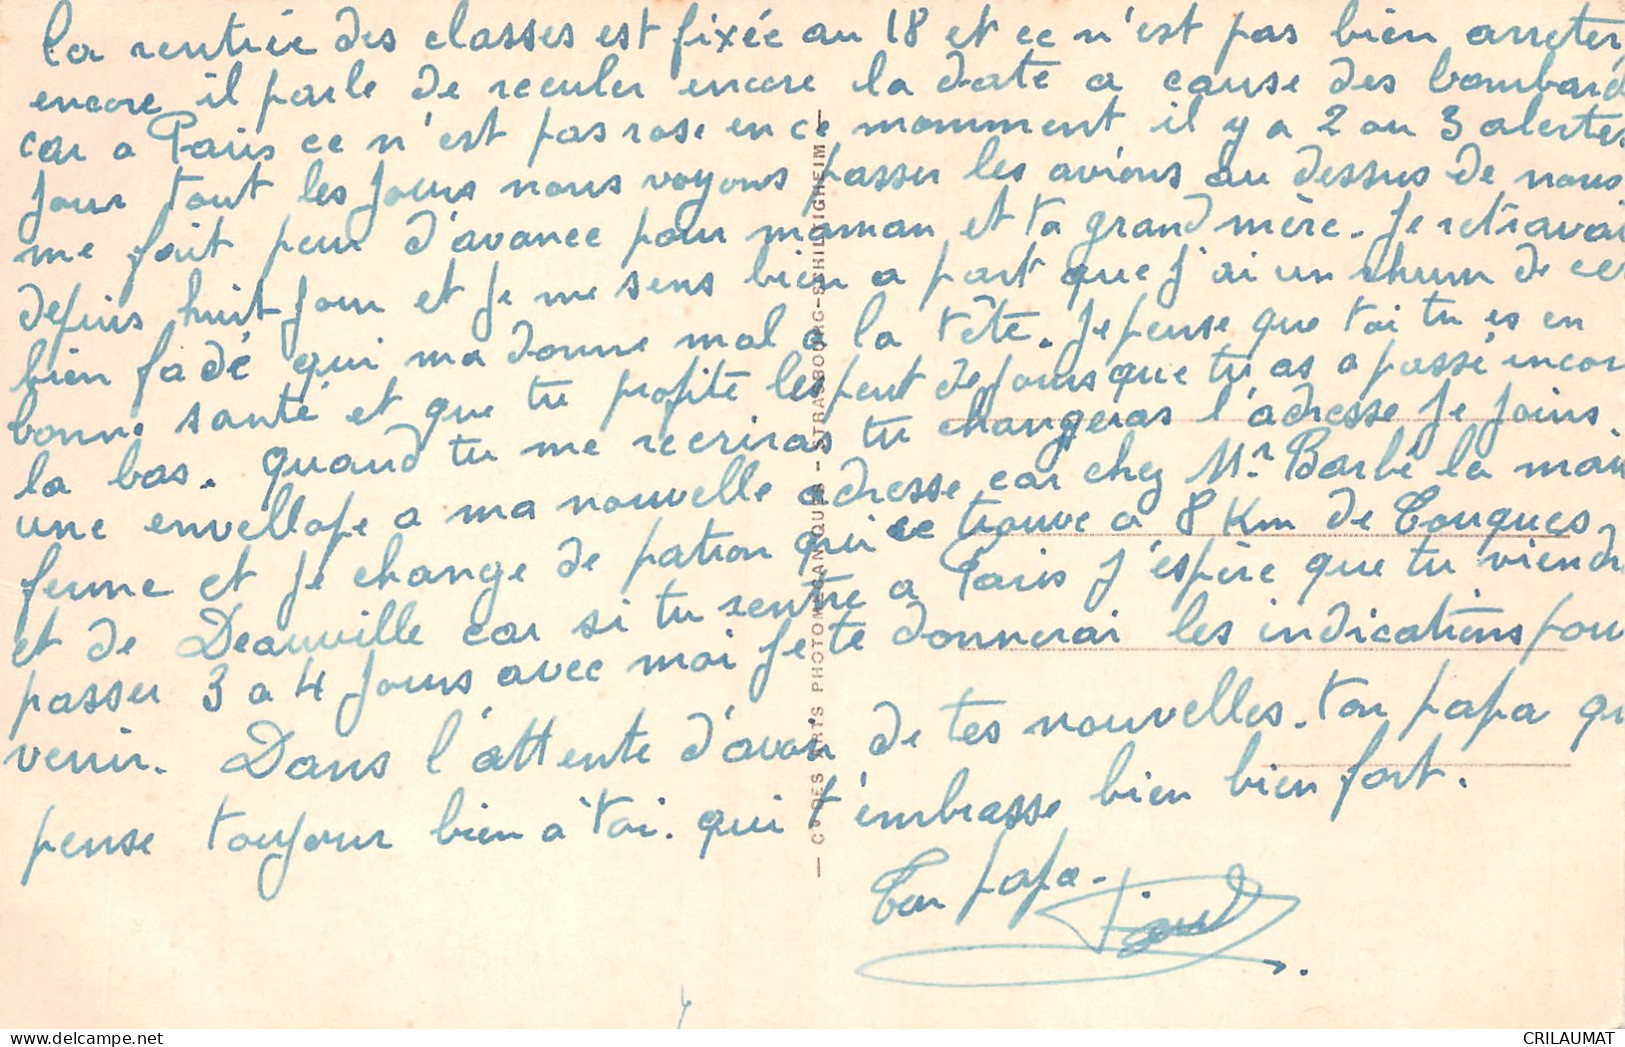 la rentrée des classes est fixée au 18 et ce n'est pas bien arreter,
encore il parle de reculer encore la date a cause des bombard
car a Paris ce n'est pas rose en ce momment il y a 2 ou 3 alertes
jour tout les jours nous voyons passer les avions au dessus de nous
me fait peur d'avance pour maman et ta grand mère. Je retravai
depuis huit jour et je me sens bien a part que j'ai un rhum de cer
bien fadé qui ma donne mal a la tête. Je pense que toi tu es en
bonne santé et que tu profite les peut de jours que tu as a passé encor
la bas. quand tu me recriras tu changeras l'adresse je joins
une envellope a ma nouvelle adresse car chez Mr Barbé la mai
ferme et je change de patron qui ce trouve a 8 Km de Touques
et de Deauville car si tu rentre a Paris j'espère que tu viendr
passer 3 a 4 jours avec moi je te donnerai les indications pou
venir. Dans l'attente d'avoir de tes nouvelles. ton papa qu
pense toujour bien a toi. qui t'embrasse bien bien fort.
Ton papa.
— CIE DES ARTS PHOTOMÉCANIQUES - STRASBOURG-SCHILTIGHEIM —
CRILAUMAT